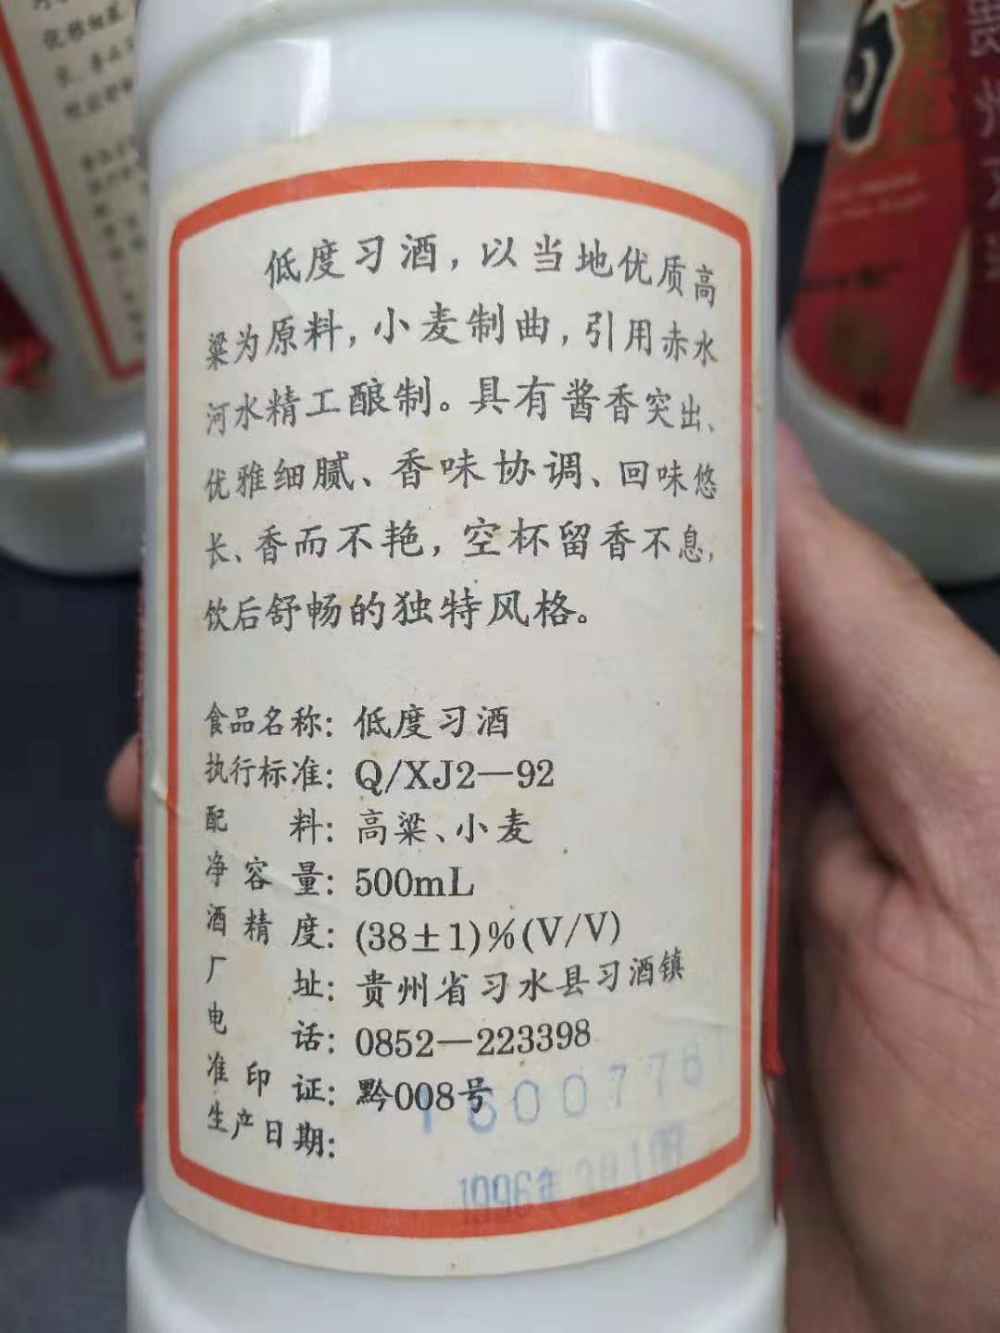 低度习酒，以当地优质高
粱为原料，小麦制曲，引用赤水
河水精工酿制。具有酱香突出、
优雅细腻、香味协调、回味悠
长、香而不艳，空杯留香不息，
饮后舒畅的独特风格。
食品名称：低度习酒
执行标准：Q/XJ2—92
配料：高粱、小麦
净容量：500mL
酒精度：(38±1)%(V/V)
厂址：贵州省习水县习酒镇
电话：0852—223398
准印证：黔008号
生产日期：
1996年